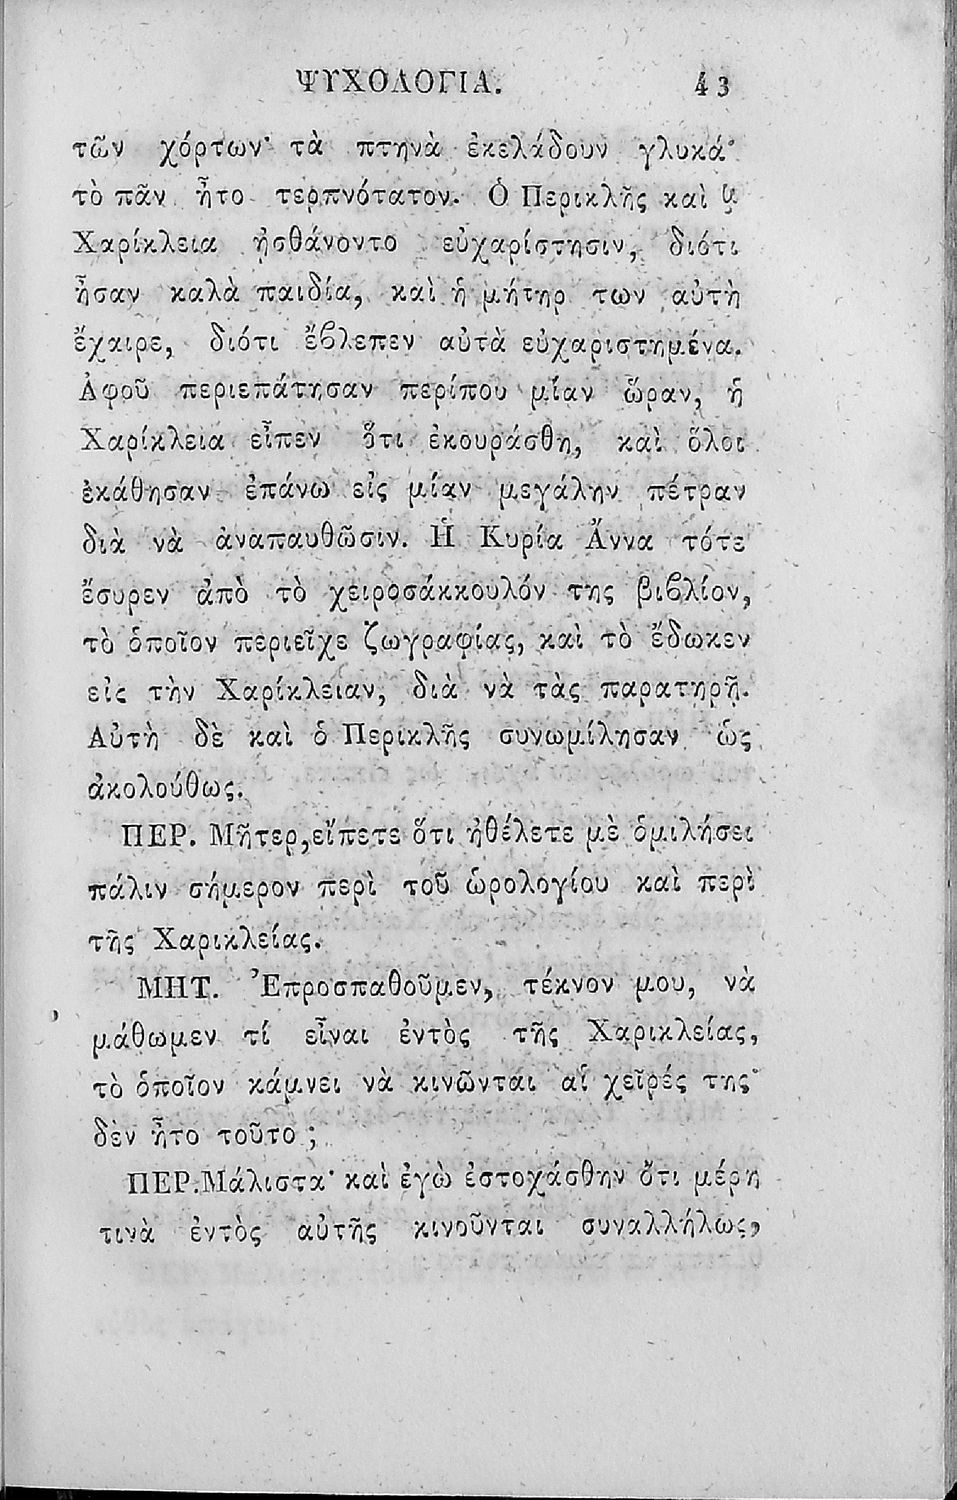 ΨΥΧΟΛΟΓΙΑ. 43
τῶν χόρτων· τὰ πτηνὰ ἐκελάδουν γλυκά·
τὸ πᾶν ἦτο τερπνότατον. Ὁ Περικλῆς καὶ ἡ
Χαρίκλεια ᾐσθάνοντο εὐχαρίστησιν, διότι
ἦσαν καλὰ παιδία, καὶ ἡ μήτηρ των αὐτὴ
ἔχαιρε, διότι ἔβλεπεν αὐτὰ εὐχαριστημένα.
Ἀφοῦ περιεπάτησαν περίπου μίαν ὥραν, ἡ
Χαρίκλεια εἶπεν ὅτι ἐκουράσθη, καὶ ὅλοι
ἐκάθησαν ἐπάνω εἰς μίαν μεγάλην πέτραν
διὰ νὰ ἀναπαυθῶσιν. Ἡ Κυρία Ἄννα τότε
ἔσυρεν ἀπὸ τὸ χειροσάκκουλόν της βιβλίον,
τὸ ὁποῖον περιεῖχε ζωγραφίας, καὶ τὸ ἔδωκεν
εἰς τὴν Χαρίκλειαν, διὰ νὰ τὰς παρατηρῇ.
Αὐτὴ δὲ καὶ ὁ Περικλῆς συνωμίλησαν ὡς
ἀκολούθως.
ΠΕΡ. Μῆτερ, εἴπετε ὅτι ἠθέλετε μὲ ὁμιλήσει
πάλιν σήμερον περὶ τοῦ ὡρολογίου καὶ περὶ
τῆς Χαρικλείας.
ΜΗΤ. Ἐπροσπαθοῦμεν, τέκνον μου, νὰ
μάθωμεν τί εἶναι ἐντὸς τῆς Χαρικλείας,
τὸ ὁποῖον κάμνει νὰ κινῶνται αἱ χεῖρές της·
δὲν ἦτο τοῦτο ;
ΠΕΡ. Μάλιστα· καὶ ἐγὼ ἐστοχάσθην ὅτι μέρη
τινὰ ἐντὸς αὐτῆς κινοῦνται συναλλήλως,